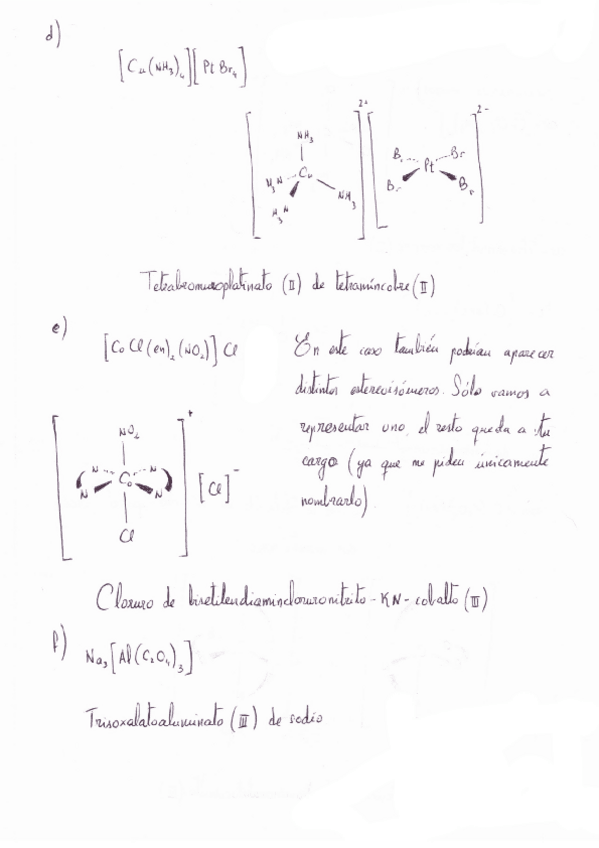 d)
[Cu(NH₃)₄][PtBr₄]
2+ 2-
NH₃
H₃N Cu
H₃N NH₃
Br Br
Pt
Br Br
Tetrabromuroplatinato (II) de tetramíncobre (II)
e)
[CoCl(en)₂(NO₂)]Cl
En este caso también podrían aparecer
distintos estereoisómeros. Sólo vamos a
representar uno, el resto queda a tu
cargo (ya que me piden únicamente
nombrarlo).
+
NO₂
N N
Co
N N
Cl
[Cl]⁻
Cloruro de bisetilendiamincloruronitrito-KN-cobalto (III)
f)
Na₃[Al(C₂O₄)₃]
Trisoxalatoaluminato (III) de sodio